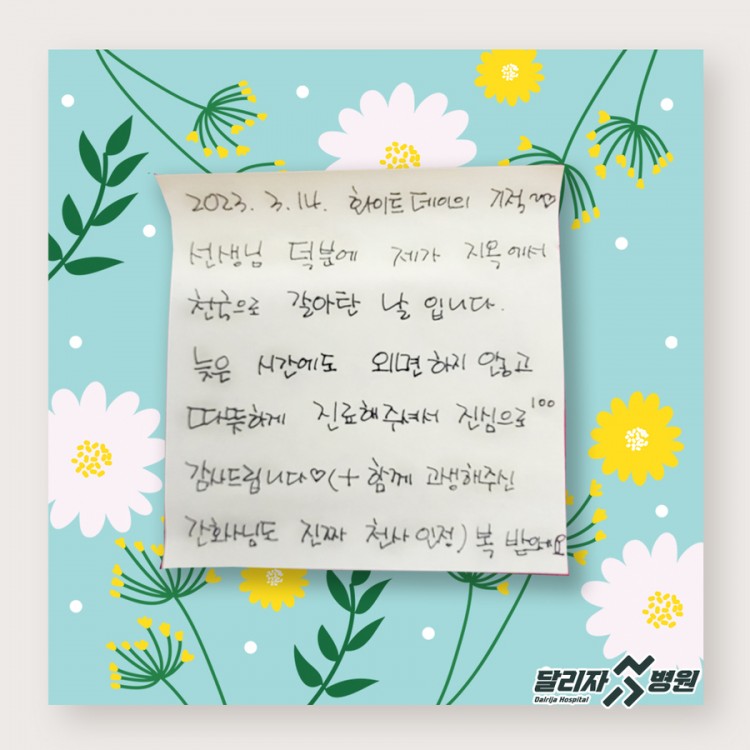 2023. 3.14. 화이트데이의 기적♡♡
선생님 덕분에 제가 지옥에서
천국으로 갈아탄 날 입니다.
늦은 시간에도 외면하지 않고
따뜻하게 진료해주셔서 진심으로100
감사드립니다♡(+ 함께 고생해주신
간호사님도 진짜 천사 인정) 복 받으세요
달리자병원
Dalrija Hospital